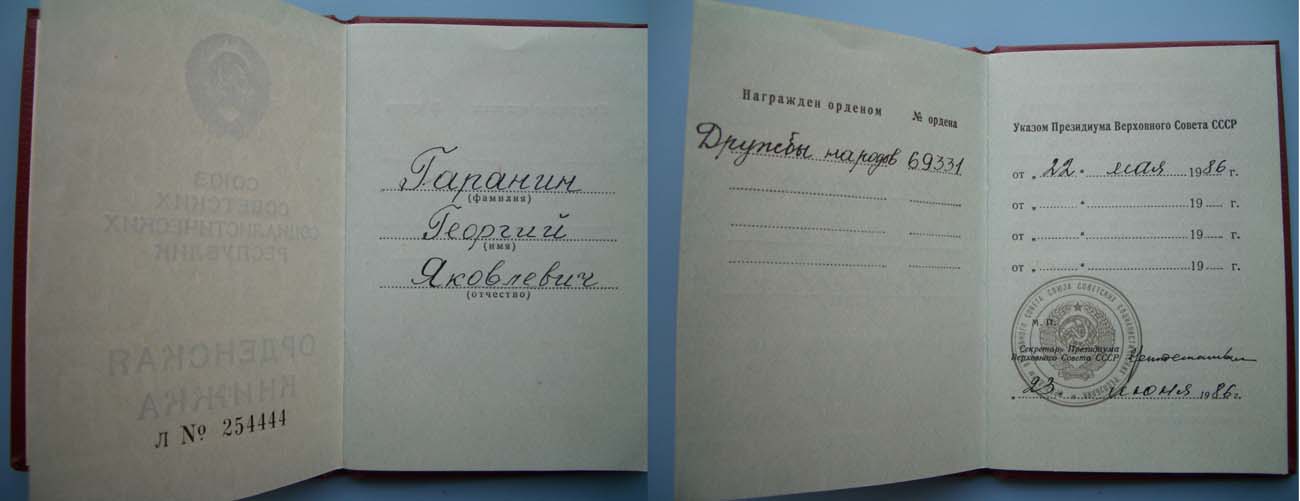 СОЮЗ
СОВЕТСКИХ
СОЦИАЛИСТИЧЕСКИХ
РЕСПУБЛИК
ОРДЕНСКАЯ
КНИЖКА
Л № 254444
Гаранин
(фамилия)
Георгий
(имя)
Яковлевич
(отчество)
Награжден орденом № ордена
Дружбы народов 69331
Указом Президиума Верховного Совета СССР
от „22“ мая 1986 г.
от „ “ 19 г.
от „ “ 19 г.
от „ “ 19 г.
М. П.
Секретарь Президиума
Верховного Совета СССР
„23“ июня 1986 г.